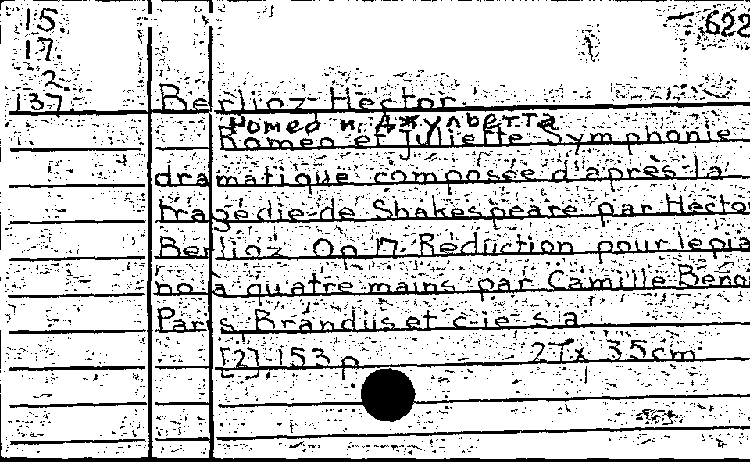 15.
17.
2.
137.
622
Berlioz Hector.
Ромео и Джульетта
Roméo et Juliette Symphonie
dramatique composée d'après la
tragédie de Shakespeare par Hector
Berlioz Op 17. Réduction pour le pia
no à quatre mains par Camille Benoi
Paris Brandus et c-ie s a
[2] 153 p 27 x 35 cm